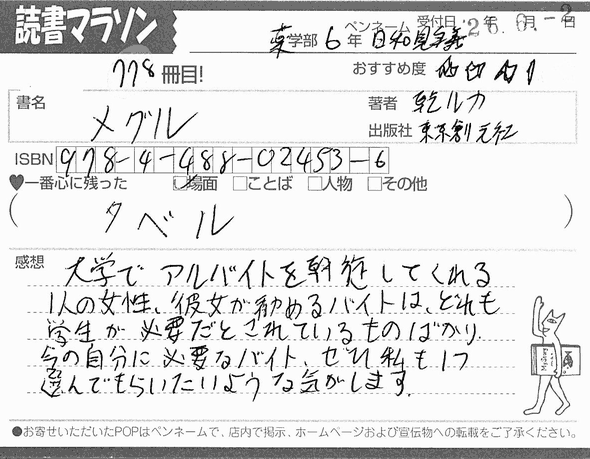 読書マラソン
ペンネーム 受付日 26年 6月 -2日
薬学部 6年 日和見主義
778冊目!
おすすめ度
書名
メグル
著者 乾ルカ
出版社 東京創元社
ISBN 978-4-488-02453-6
♥一番心に残った ☑場面 □ことば □人物 □その他
( タベル )
感想
大学でアルバイトを斡旋してくれる
1人の女性、彼女が勧めるバイトは、どれも
学生が必要だとされているものばかり.
今の自分に必要なバイト、ぜひ私も1つ
選んでもらいたいような気がします.
●お寄せいただいたPOPはペンネームで、店内で掲示、ホームページおよび宣伝物への転載をご了承ください。